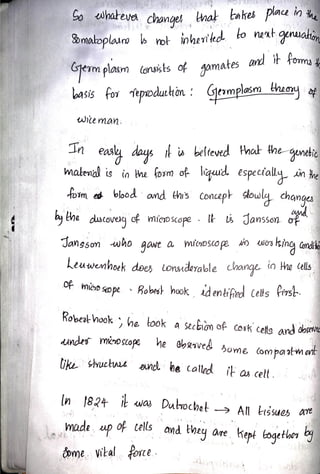 So whatever changes that takes place in the
Somatoplasm is not inherited to next generation
Germplasm consists of gamates and it forms
basis for reproduction : Germplasm theory of
wiceman.
In early days it is believed that the genetic
material is in the form of liquid especially in the
form of blood and this concept slowly changes
by the discovery of microscope. It is Jansson and
Jansson who gave a microscope in working condition
Leuwenhoek does considerable change in the cells
of microscope. Robert hook identified cells first.
Robert hook ; he took a section of cork cells and observe
under microscope he obsrved some compartment
like structure and he called it as cell.
In 1824 it was Dutrochet → All tissues are
made up of cells and they are kept together by
some vital force.